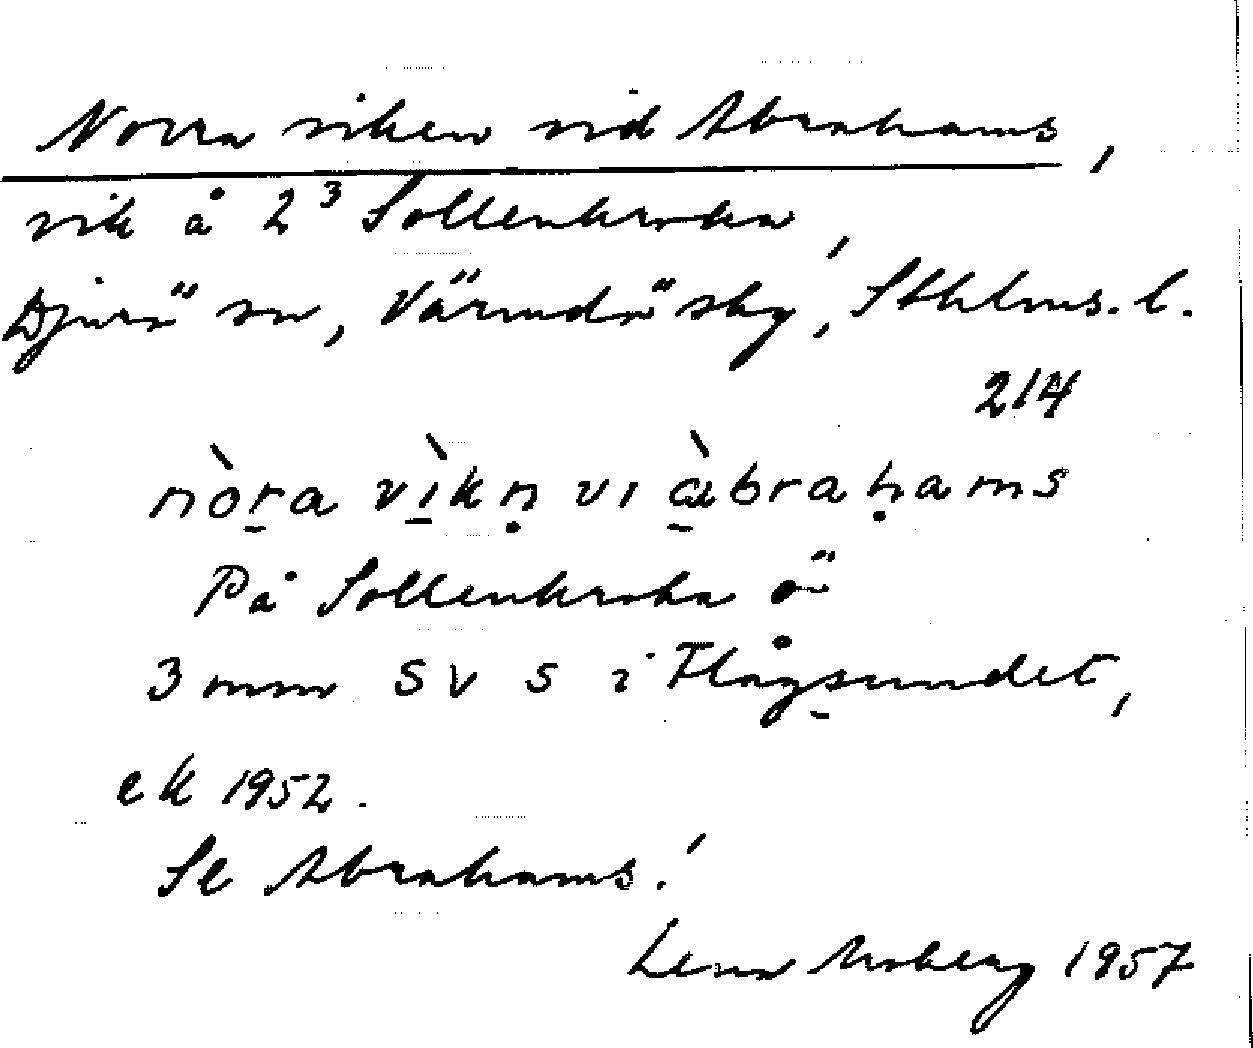 Norra viken vid Abrahams,
vik å 2³ Sollenkroka,
Djurö sn, Värmdö sky, Sthlms. l.
214
nòra vìkṇ vi àbraḥams
På Sollenkroka ö
3 mm SV S i Flågsundet,
ek 1952.
Se Abrahams!
Lena Moberg 1957